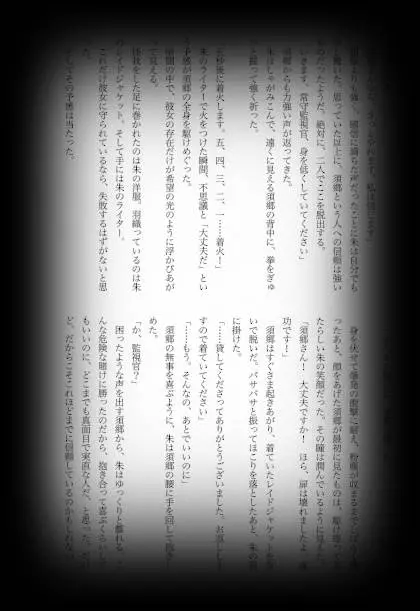 り強く、確信に満ちた声だったことに朱は自分でも
し驚いた。思っていた以上に、須郷という人への信頼は強い
のだったようだ。絶対に、二人でここを脱出する。
いきます。常守監視官、身を低くしていてください」
須郷からも力強い声が返ってきた。
朱はしゃがみこんで、遠くに見える須郷の背中に、拳をぎゅ
と握って強く祈った。
秒後に着火します。五、四、三、二、一……着火！」
朱のライターで火をつけた瞬間、不思議と「大丈夫だ」とい
予感が須郷の全身を駆けめぐった。
暗闇の中で、彼女の存在だけが希望の光のように浮かびあが
て見える。
怪我をした足に巻かれたのは朱の洋服。羽織っているのは朱
のレイドジャケット。そして手には朱のライター。
これだけ彼女に守られているなら、失敗するはずがないと思
た。
そしてその予感は当たった。
身を伏せて爆発の衝撃に耐え、粉塵が収まるまで
ったあと、顔をあげた須郷が最初に見たものは、駆け寄って
たらしい朱の笑顔だった。その瞳は潤んでいるように見え
「須郷さん！　大丈夫ですか！　ほら、扉は壊れましたよ
功です！」
須郷はすぐさま起きあがり、着ていたレイドジャケットを
いで脱いだ。バサバサと振ってほこりを落としたあと、朱の
に掛けた。
「……貸してくださってありがとうございました。お返し
すので着ていてください」
「……もう。そんなの、あとでいいのに」
須郷の無事を喜ぶように、朱は須郷の腰に手を回して抱き
めた。
「か、監視官？」
困ったような声を出す須郷から、朱はゆっくりと離れる。
んな危険な賭けに勝ったのだから、抱き合って喜ぶくらい
もいいのに、どこまでも真面目で実直な人だ、と思った。
ど、だからこそこれほどまでに信頼しているのかもしれな